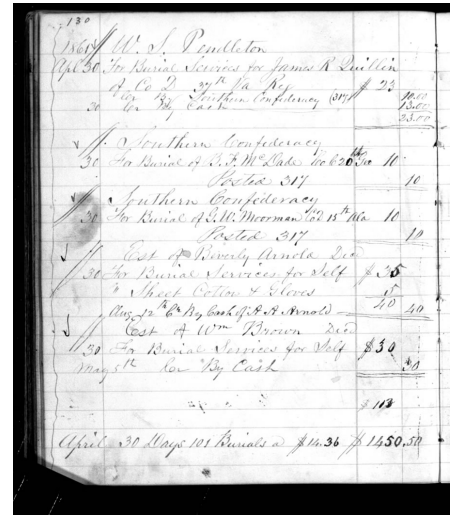 130
1861 W. S. Pendleton
Apl 30 For Burial Services for James R Quillin
of Co D 37th Va Reg $ 23
Cr By Southern Confederacy (317) 10.00
30 Cr By Cash 13.00
23.00
Southern Confederacy
30 For Burial of B. F. McDade Co 6 20th Geo 10
Posted 317 10
Southern Confederacy
30 For Burial of G. W. Moorman Co 15th Ala 10
Posted 317 10
Est of Beverly Arnold Decd
30 For Burial Services for Self $ 35
" Sheet Cotton & Gloves 5
40
Aug 12th Cr By Cash of A A Arnold 40
Est of Wm Brown Decd
30 For Burial Services for Self $ 30
May 5th Cr By Cash 30
$ 113
April 30 Days 101 Burials a $14.36 $1450.50